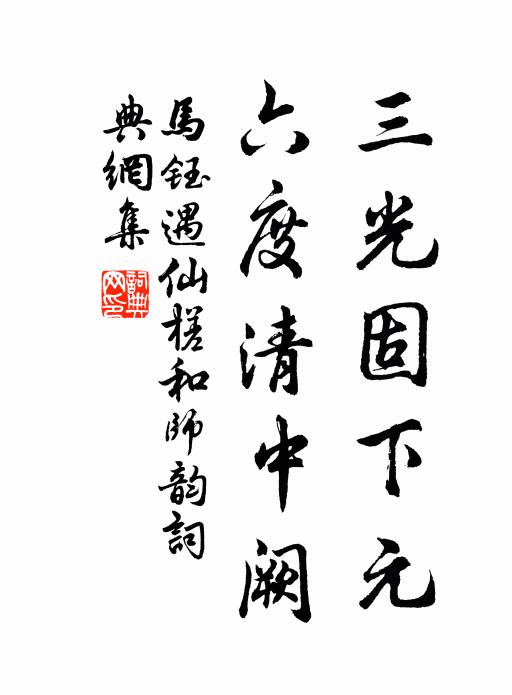 三光固下元
六度清中阙
馬鈺遇仙槎和師韵詞
典網集
詞典网印